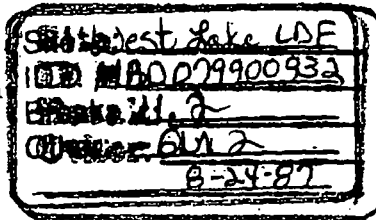 Site: West Lake LDF
ID # MOD079900932
Break: 11.2
Other:
8-24-87